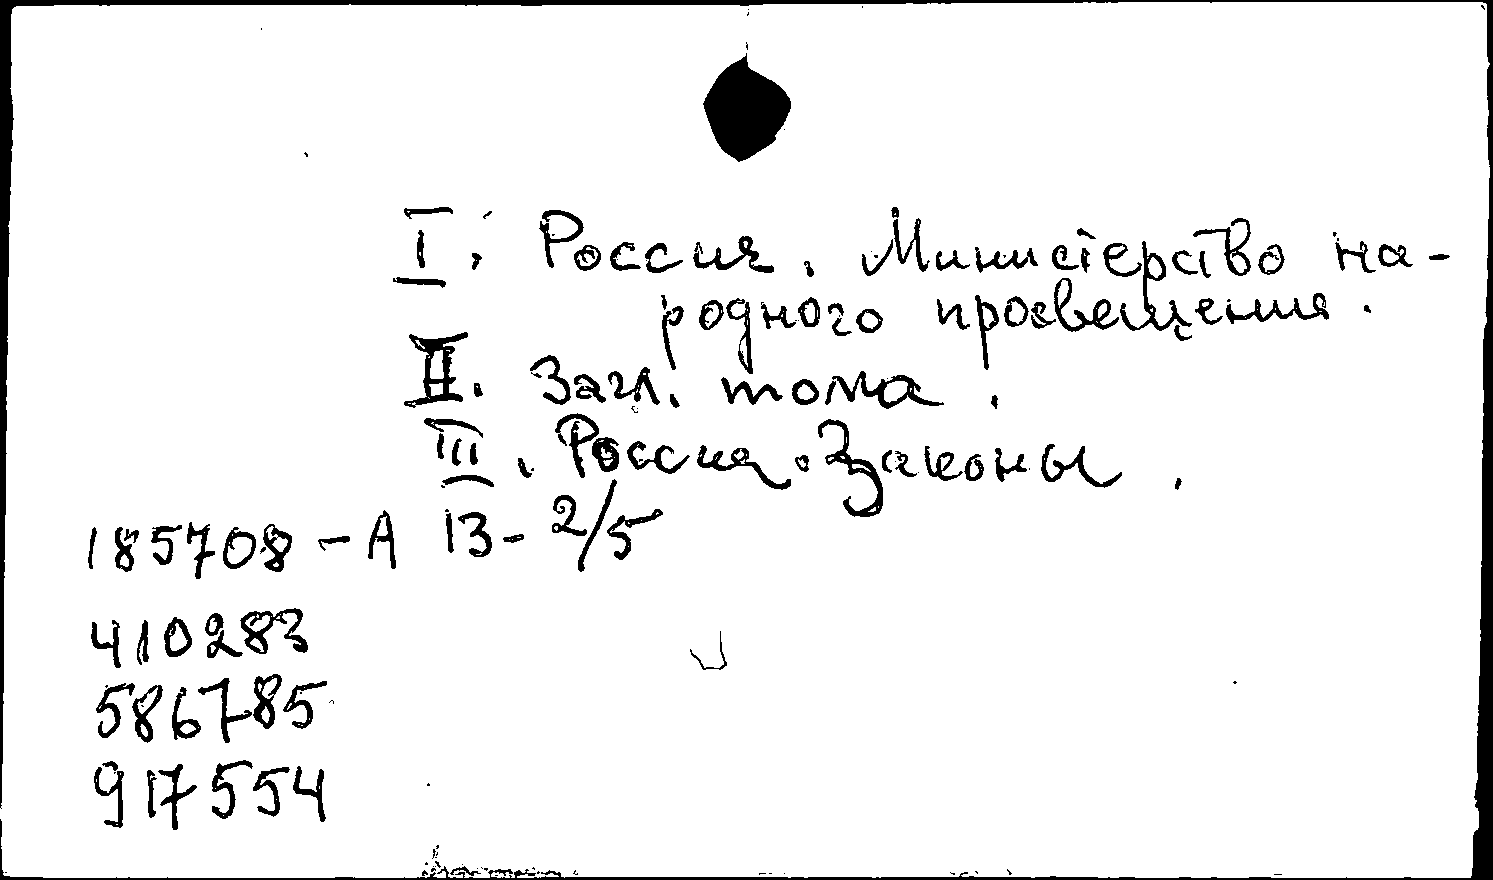 I. Россия. Министерство на-
родного просвещения.
II. Загл. тома.
III. Россия. Законы.
185708-А 13-2/5
410283
586785
917554